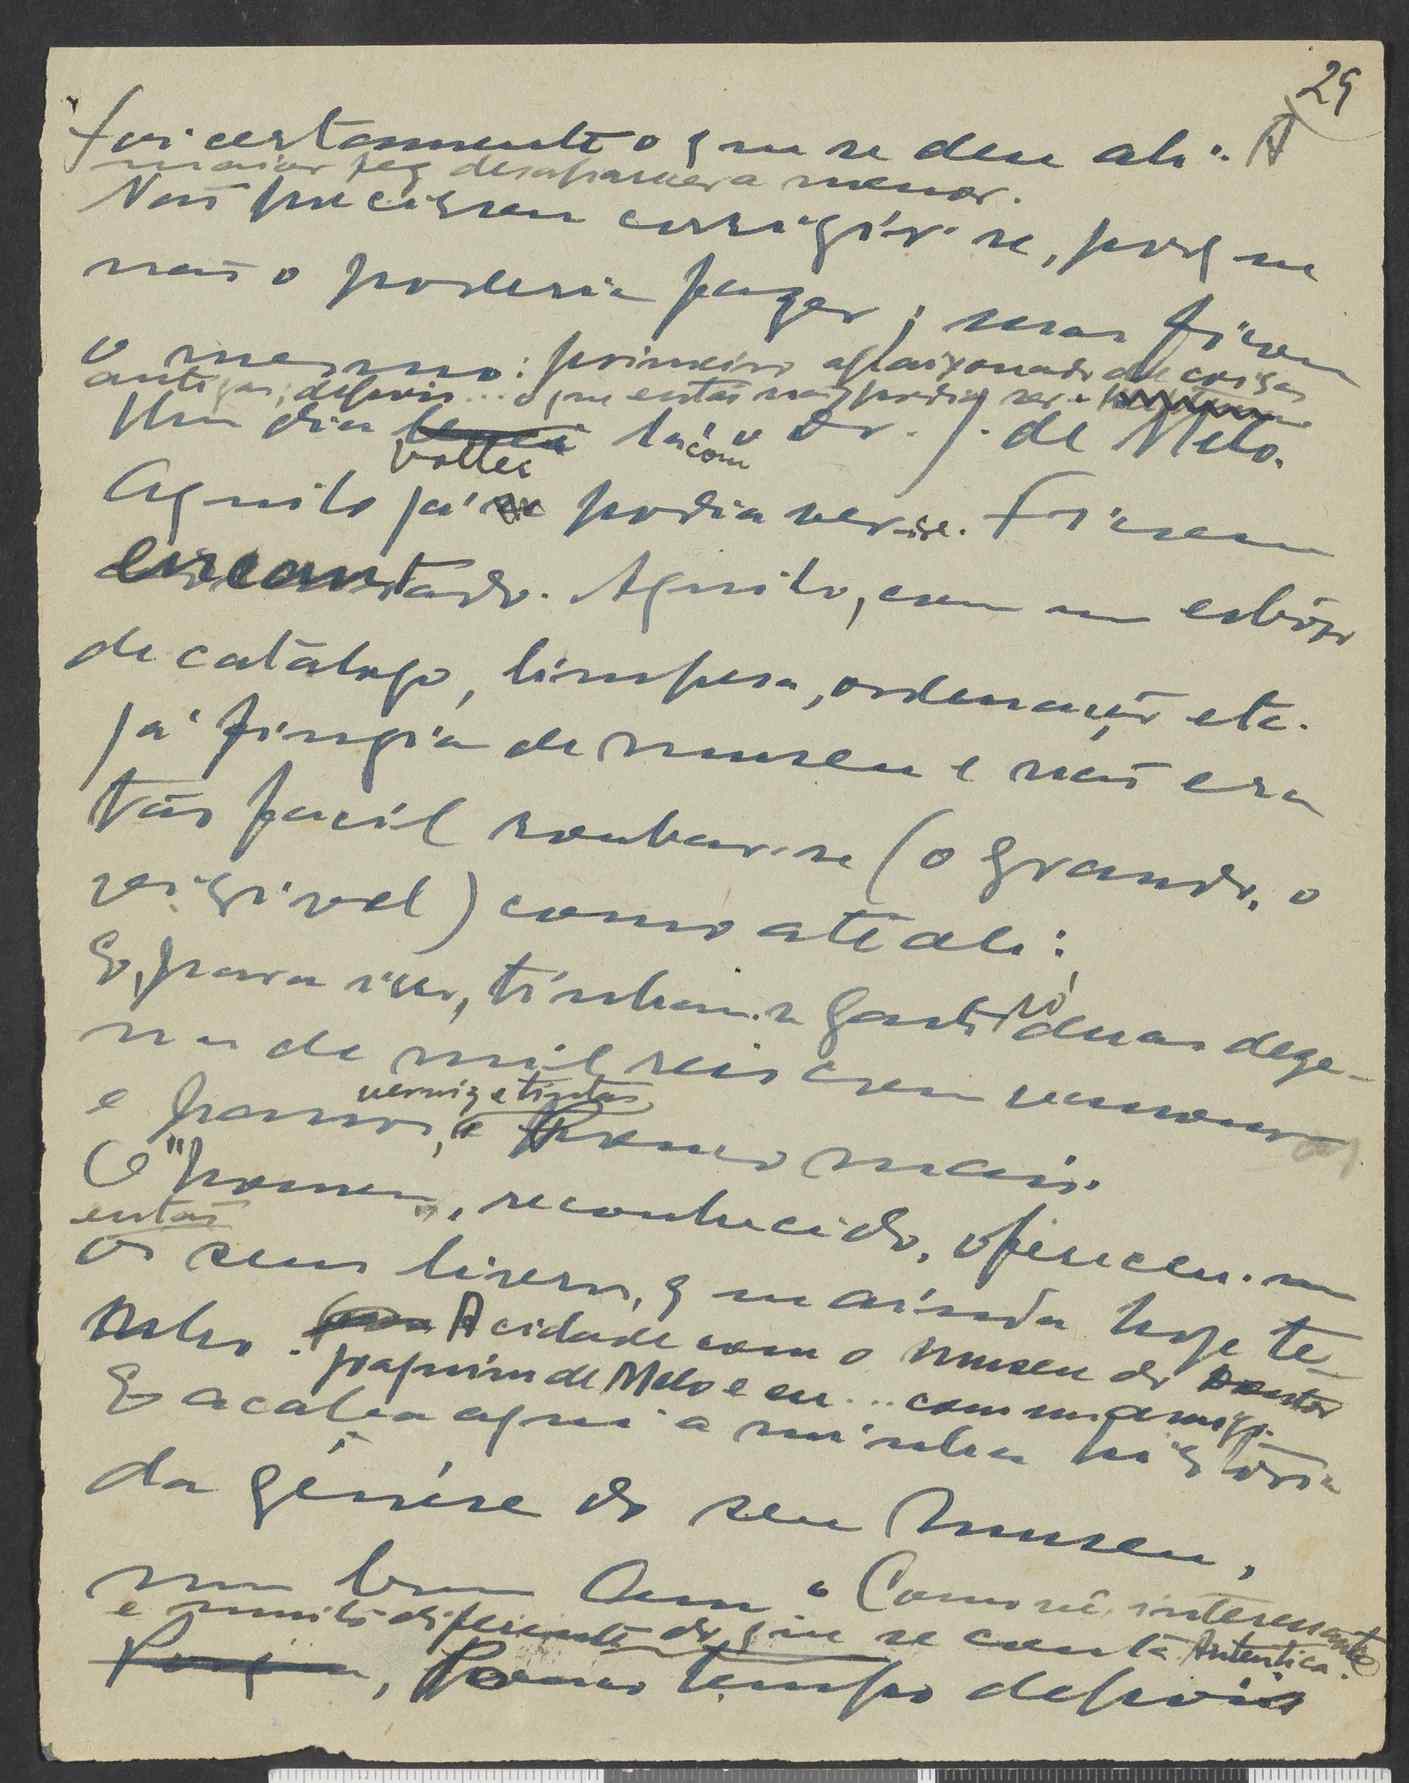 29
foi certamente o que se deu ali: A
maior fez desaparecer a menor.
Não precisou corrigir-se, porque
não o poderia fazer; mas ficou
o mesmo: primeiro apaixonado de coisas
antigas; depois... o que então não podia ser.
Um dia levei lá o Dr. J. de Melo.
voltei com
Aquilo já se podia ver-se. Ficou
encantado. Aquilo, com um esbôço
de catálogo, limpesa, ordenação etc.
já fingia de museu e não era
tão facil roubar-se (o grande, o
visivel) como até ali:
E, para isso, tinham-se gasto só duas deze-
nas de mil reis com
e panos, e pouco mais.
verniz e tintas
O "homem", reconhecido, ofereceu-me
então
os seus livros, que ainda hoje te-
nho. A cidade com o Museu do Doutor
Joaquim de Melo e eu... com um amigo.
E acaba aqui a minha história
da génese do seu Museu,
Como vê, interessante
e muito diferente do que se conta. Autentica.
Porque, Pouco tempo depois